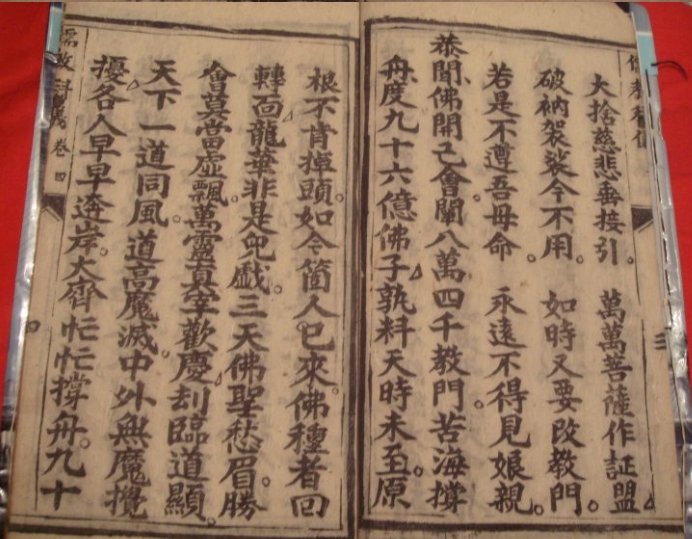 大捨慈悲垂接引。萬萬菩薩作証盟
破衲袈裟今不用。如時又要改教門。
若是不尊吾母命。永遠不得見娘親。
恭聞佛開已會闡八萬四千教門。苦海撐
舟度九十六億佛子孰料天時未至。原
根不肯掉頭。如今箇人已來。佛種者回
轉面。龍華非是兒戲。三天佛聖愁眉。勝
會莫當虛飄。萬靈真宰歡慶刼臨道顯。
天下一道同風。道高魔滅。中外無魔攪
擾各人早早逩岸。大齊忙忙撐舟。九十
卷四
三
四